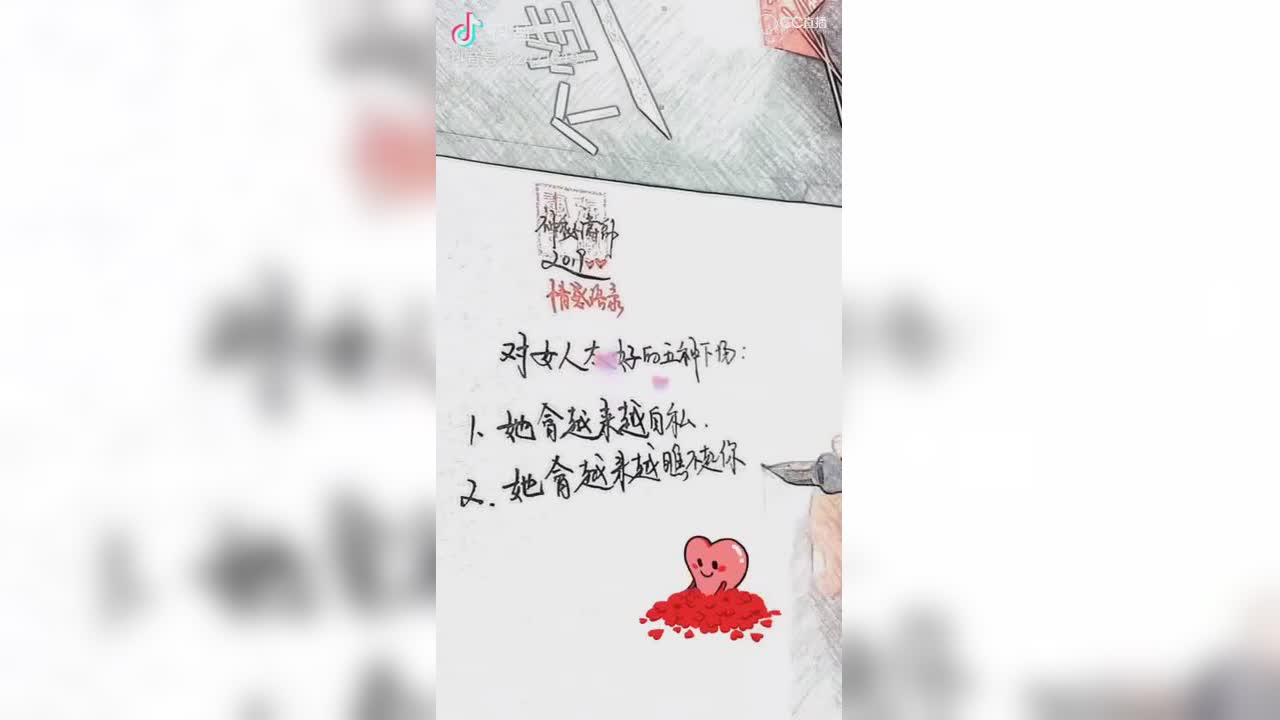 CC直播
抖音号
2019
情感语录
对女人太好的五种下场：
1、她会越来越自私.
2．她会越来越瞧不起你